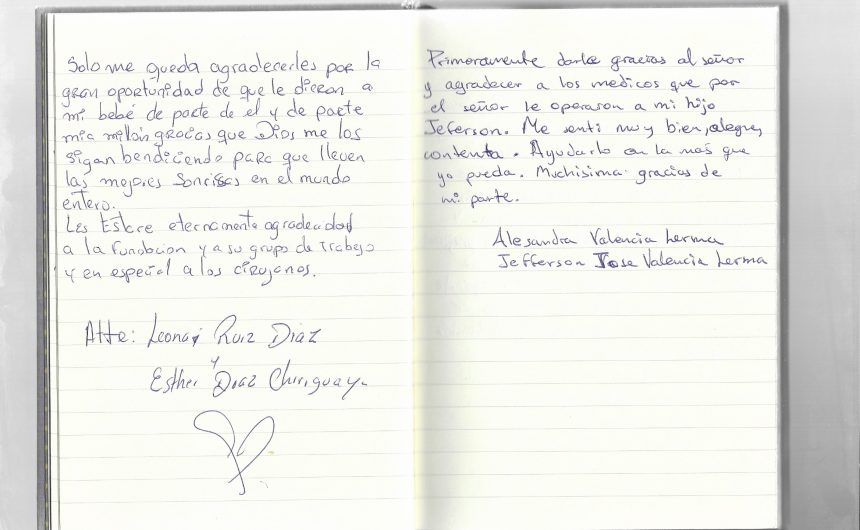 Solo me queda agradecerles por la
gran oportunidad de que le dieron a
mi bebé de parte de el y de parte
mia millón gracias que Dios me los
sigan bendiciendo para que lleven
las mejores Sonrisas en el mundo
entero.
Les Estare eternamente agradecidos
a la fundacion y a su grupo de trabajo
y en especial a los cirujanos.
Atte: Leonar Ruiz Diaz
y
Esther Diaz Chiriguay.
Primeramente darle gracias al señor
y agradecer a los medicos que por
el señor le operaron a mi hijo
Jeferson. Me senti muy bien, alegre,
contenta. Ayudarlo en la mas que
yo pueda. Muchisima gracias de
mi parte.
Alesandra Valencia Lerma
Jefferson Jose Valencia Lerma